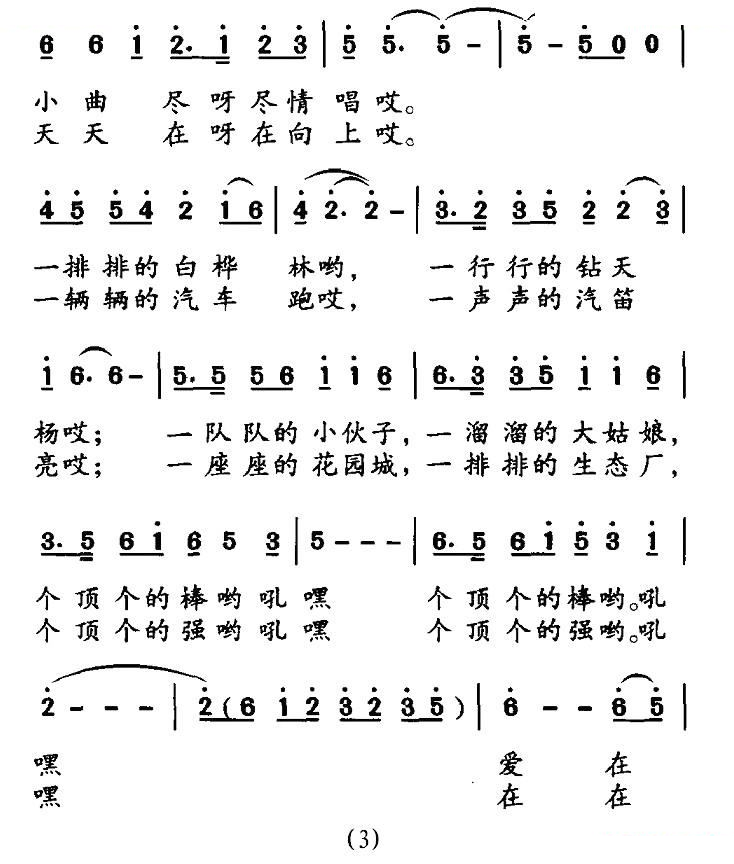 6 6 i 2. i 2 3 | 5 5. 5 - | 5 - 5 0 0 |
小曲 尽呀尽情唱哎。
天天 在呀在向上哎。
4 5 5 4 2 i 6 | 4 2. 2 - | 3. 2 3 5 2 2 3
一排排的白桦 林哟， 一行行的钻天
一辆辆的汽车 跑哎， 一声声的汽笛
i 6. 6 - | 5. 5 5 6 i i 6 | 6. 3 3 5 i i 6 |
杨哎； 一队队的小伙子，一溜溜的大姑娘，
亮哎； 一座座的花园城，一排排的生态厂，
3. 5 6 i 6 5 3 | 5 - - - | 6. 5 6 i 5 3 i |
个顶个的棒哟吼嘿 个顶个的棒哟。吼
个顶个的强哟吼嘿 个顶个的强哟。吼
2 - - - | 2 (6 i 2 3 2 3 5) | 6 - - 6 5 |
嘿 爱 在
嘿 在 在
(3)